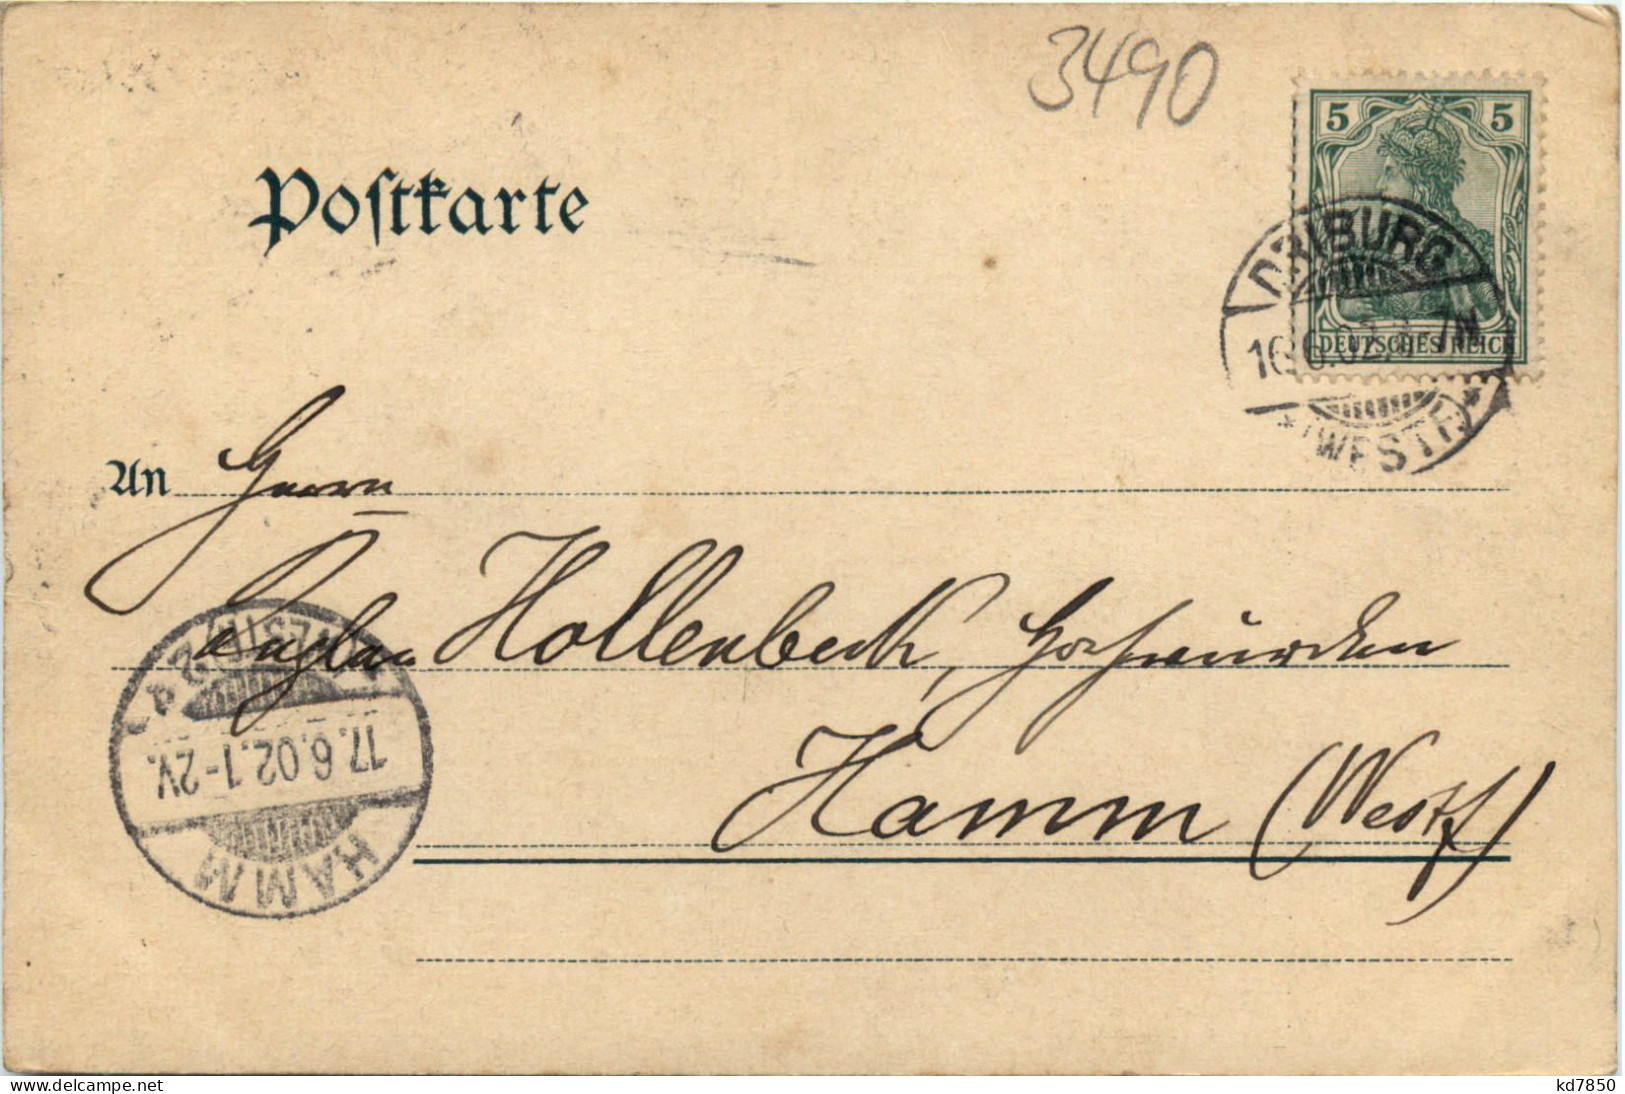 3490
5 5
Postkarte
DRIBURG
16.6.02. 7N
DEUTSCHES REICH
*(WESTF.)*
An Herrn
Hollenbeck, Hochwürden
Hamm (Westf)
HAMM
17.6.02.1-2V.
kd7850